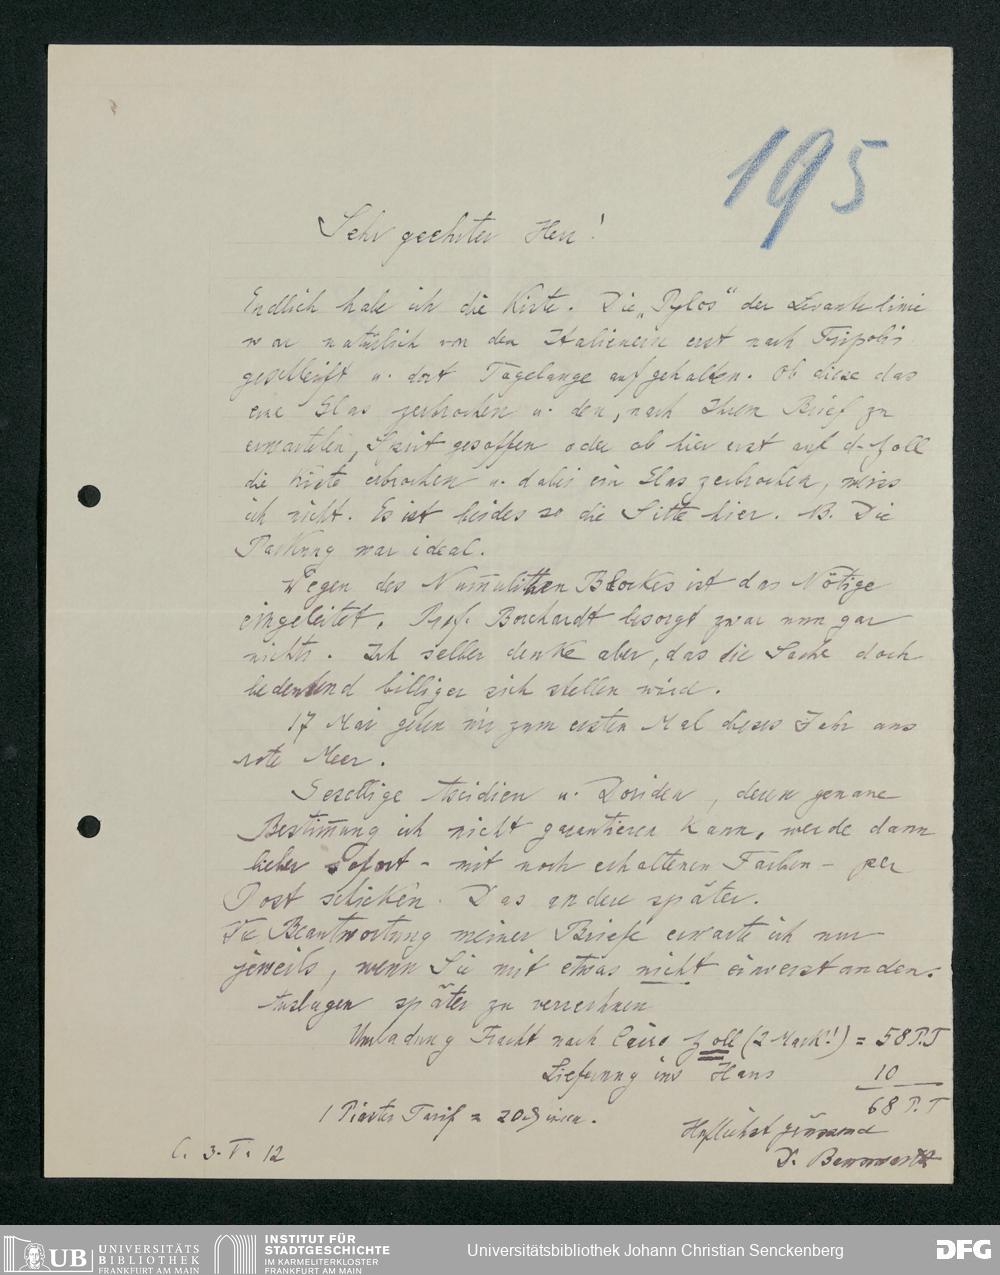 195
Sehr geehrter Herr!
Endlich habe ich die Kiste. Die „Pylos“ der Levante linie
war natürlich von den Italienern erst nach Tripolis
geschleift u. dort Tagelange aufgehalten. Ob diese das
eine Glas zerbrochen u. den, nach Ihrem Brief zu
erwartenden, Sprit gesoffen oder ob hier erst auf d. Zoll
die Kiste erbrochen u. dabei ein Glas zerbrochen, weiss
ich nicht. Es ist beides so die Sitte hier. NB. Die
Packung war ideal.
Wegen des Num̄ulithen Blockes ist das Nötige
eingeleitet. Prof. Borchardt besorgt zwar nun gar
nichts. Ich selber denke aber, das die Sache doch
bedeutend billiger sich stellen wird.
17 Mai gehen wir zum ersten Mal dieses Jahr ans
rote Meer.
Gesellige Ascidien u. Doriden, deren genaue
Bestim̄ung ich nicht garantieren kann, werde dann
lieber sofort - mit noch erhaltenen Farben - per
Post schicken. Das andere später.
Die Beantwortung meiner Briefe erwarte ich nur
jeweils, wenn Sie mit etwas nicht einverstanden.
Auslagen später zu verrechnen
Umladung Fracht nach Cairo Zoll (2 Mark!) = 58 P.T
Lieferung ins Haus 10
68 P.T
1 Piaster Tarif = 20 circa.
Höflichst grüssend
C. 3. V. 12
UB UNIVERSITÄTS
BIBLIOTHEK
FRANKFURT AM MAIN
INSTITUT FÜR
STADTGESCHICHTE
IM KARMELITERKLOSTER
FRANKFURT AM MAIN
Universitätsbibliothek Johann Christian Senckenberg
DFG